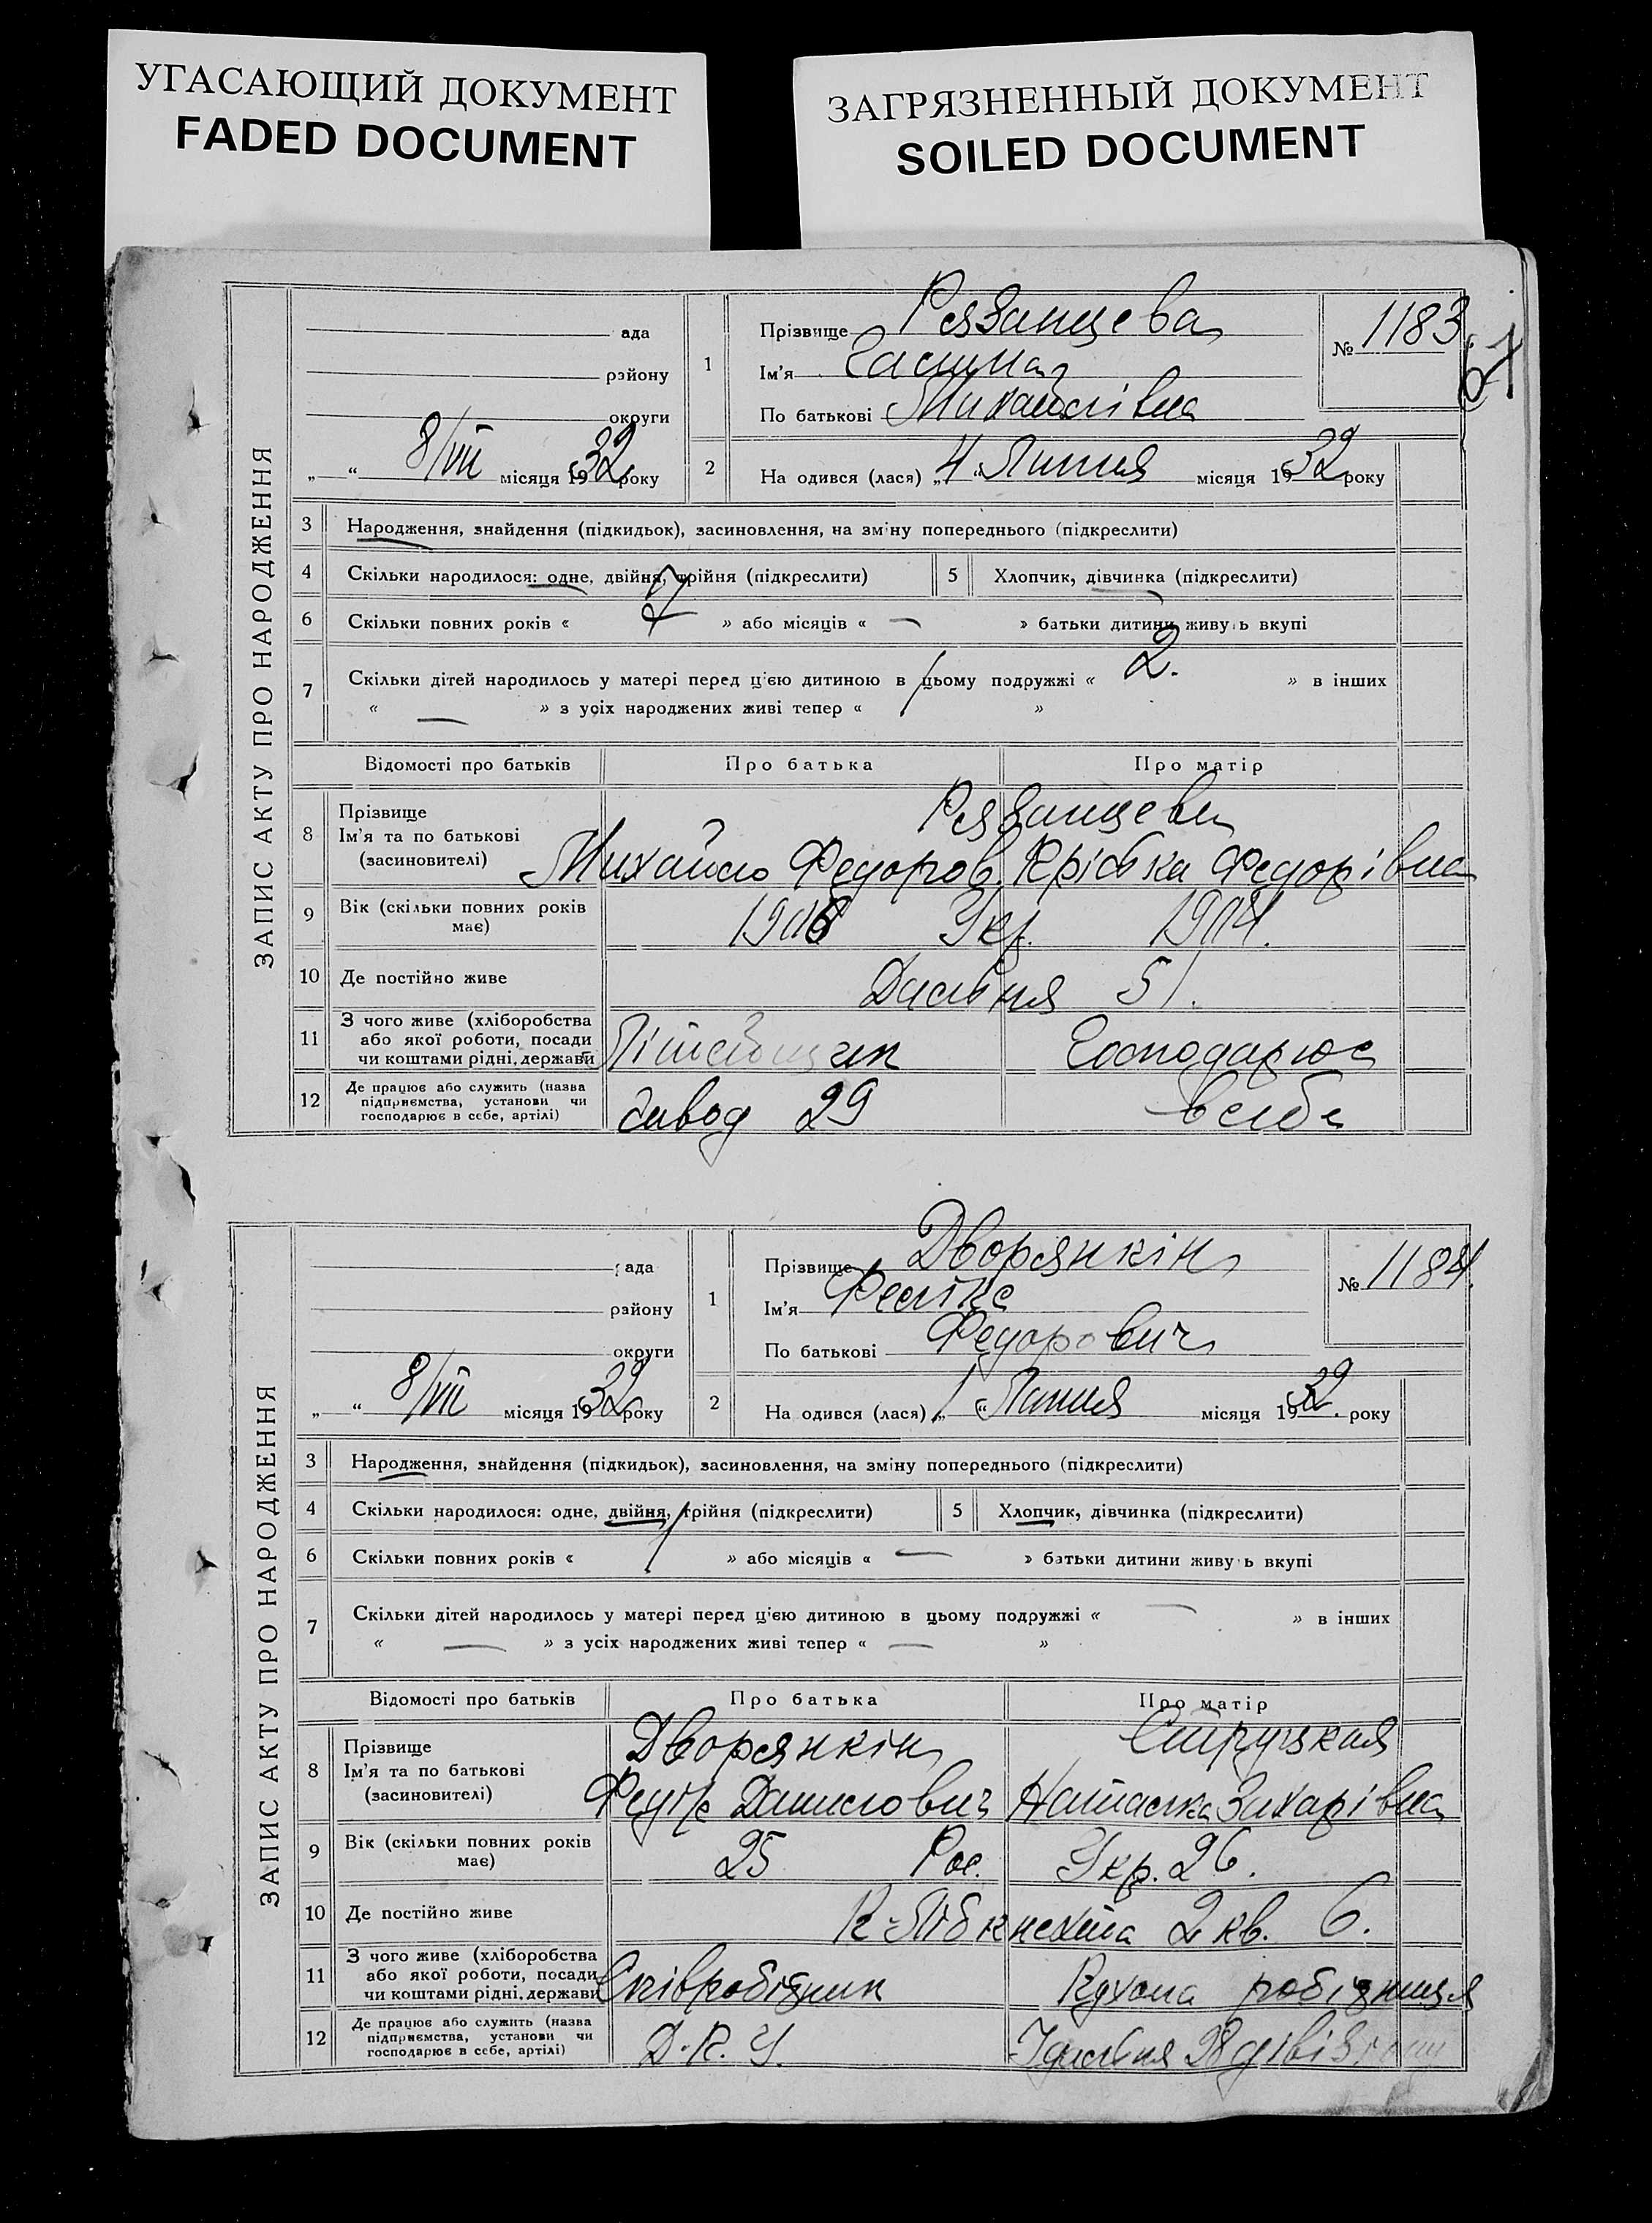 УГАСАЮЩИЙ ДОКУМЕНТ
FADED DOCUMENT
ЗАГРЯЗНЕННЫЙ ДОКУМЕНТ
SOILED DOCUMENT
ЗАПИС АКТУ ПРО НАРОДЖЕННЯ
ада
району
округи
„ “ 8/VII місяця 1932 року
1 Прізвище Рязанцева
Ім'я
По батькові Михайлівна
№ 1183
61
2 На одився (лася) „4“ Липня місяця 1932 року
3 Народження, знайдення (підкидьок), засиновлення, на зміну попереднього (підкреслити)
4 Скільки народилося: одне, двійня, трійня (підкреслити) 5 Хлопчик, дівчинка (підкреслити)
6 Скільки повних років « 7 » або місяців « — » батьки дитини живуть вкупі
7 Скільки дітей народилось у матері перед ц'єю дитиною в цьому подружжі « 2. » в інших
« — » з усіх народжених живі тепер « / »
Відомості про батьків Про батька Про матір
8 Прізвище Рязанцеви
Ім'я та по батькові Михайло Федоров. Федорівна
(засиновителі)
9 Вік (скільки повних років має) Укр.
10 Де постійно живе 51.
11 З чого живе (хліборобства або якої роботи, посади чи коштами рідні, держави) Господарює
12 Де працює або служить (назва підприємства, установи чи господарює в себе, артілі) завод 29 в себе
ЗАПИС АКТУ ПРО НАРОДЖЕННЯ
ада
району
округи
„ “ 8/VII місяця 1932 року
1 Прізвище Дворянкін
Ім'я
По батькові Федорович
№ 1184.
2 На одився (лася) „1“ Липня місяця 1932. року
3 Народження, знайдення (підкидьок), засиновлення, на зміну попереднього (підкреслити)
4 Скільки народилося: одне, двійня, трійня (підкреслити) 5 Хлопчик, дівчинка (підкреслити)
6 Скільки повних років « 1 » або місяців « — » батьки дитини живуть вкупі
7 Скільки дітей народилось у матері перед ц'єю дитиною в цьому подружжі « — » в інших
« — » з усіх народжених живі тепер « — »
Відомості про батьків Про батька Про матір
8 Прізвище Дворянкін
Ім'я та по батькові Данилович Наталка Захарівна
(засиновителі)
9 Вік (скільки повних років має) 25 Рос. Укр. 26.
10 Де постійно живе К-Лібкнехта 2 кв. 6.
11 З чого живе (хліборобства або якої роботи, посади чи коштами рідні, держави) Співробітник робітниця
12 Де працює або служить (назва підприємства, установи чи господарює в себе, артілі) 28